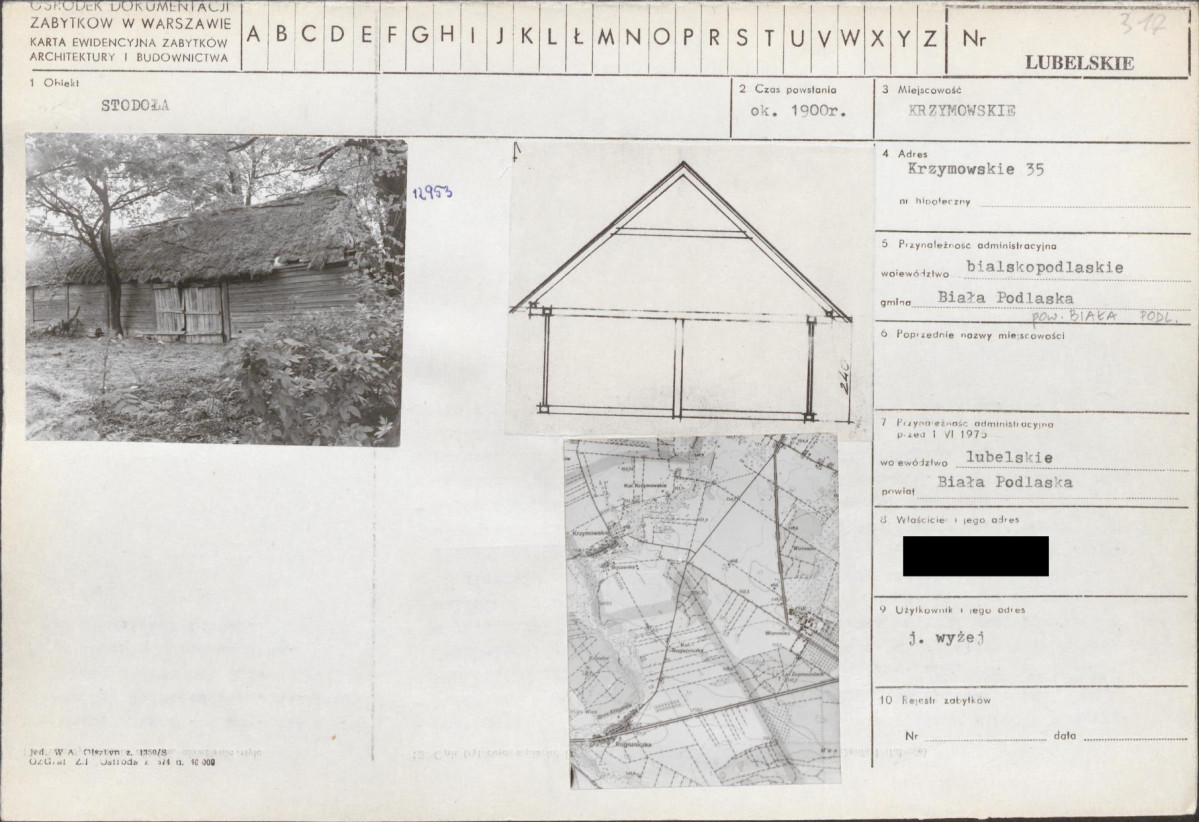 OŚRODEK DOKUMENTACJI
ZABYTKÓW W WARSZAWIE
KARTA EWIDENCYJNA ZABYTKÓW
ARCHITEKTURY I BUDOWNICTWA
A B C D E F G H I J K L Ł M N O P R S T U V W X Y Z
Nr
317
LUBELSKIE
1 Obiekt
STODOŁA
2 Czas powstania
ok. 1900r.
3 Miejscowość
KRZYMOWSKIE
12953
240
4 Adres
Krzymowskie 35
nr hipoteczny
5 Przynależność administracyjna
województwo bialskopodlaskie
gmina Biała Podlaska
pow. BIAŁA PODL.
6 Poprzednie nazwy miejscowości
7 Przynależność administracyjna
przed 1 VI 1975
województwo lubelskie
powiat Biała Podlaska
8 Właściciel i jego adres
9 Użytkownik i jego adres
j. wyżej
10 Rejestr zabytków
Nr data
Kol. Krzymowskie
Krzymowskie
Rogoźniczka
Jed. W.A. Olsztyn z. 1350/S